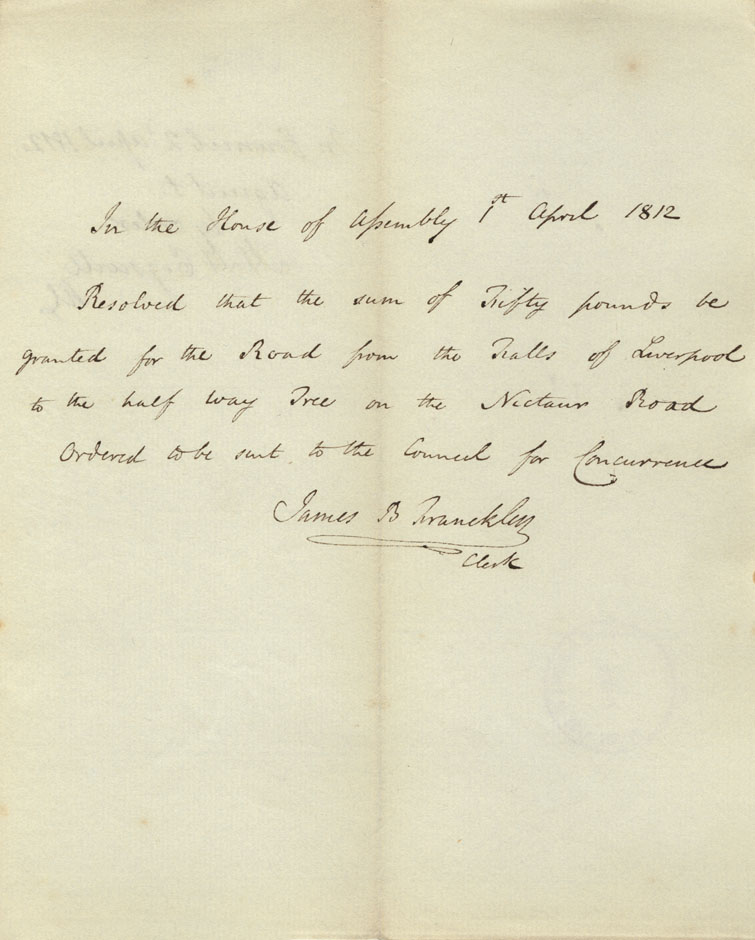 In the House of Assembly 1st April 1812
Resolved that the sum of Fifty pounds be
granted for the Road from the Falls of Liverpool
to the half way Tree on the Nictaux Road
Ordered to be sent to the Council for Concurrence
James B Francklin
Clerk